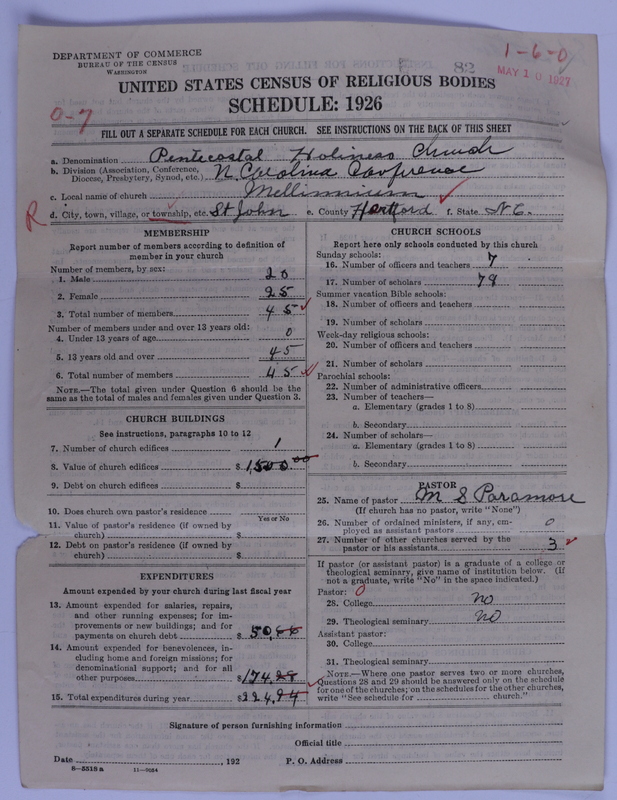 DEPARTMENT OF COMMERCE
BUREAU OF THE CENSUS
WASHINGTON
82
1-6-0
MAY 10 1927
UNITED STATES CENSUS OF RELIGIOUS BODIES
SCHEDULE: 1926
0-7
FILL OUT A SEPARATE SCHEDULE FOR EACH CHURCH. SEE INSTRUCTIONS ON THE BACK OF THIS SHEET
a. Denomination Pentecostal Holiness Church
b. Division (Association, Conference, Diocese, Presbytery, Synod, etc.) N Carolina Conference
c. Local name of church
R d. City, town, village, or township, etc. St John e. County Hertford f. State N.C.
MEMBERSHIP
Report number of members according to definition of
member in your church
Number of members, by sex:
1. Male 20
2. Female 25
3. Total number of members 45
Number of members under and over 13 years old:
4. Under 13 years of age 0
5. 13 years old and over 45
6. Total number of members 45
NOTE.—The total given under Question 6 should be the
same as the total of males and females given under Question 3.
CHURCH BUILDINGS
See instructions, paragraphs 10 to 12
7. Number of church edifices 1
8. Value of church edifices $1500.00
9. Debt on church edifices $
10. Does church own pastor's residence
Yes or No
11. Value of pastor's residence (if owned by
church) $
12. Debt on pastor's residence (if owned by
church) $
EXPENDITURES
Amount expended by your church during last fiscal year
13. Amount expended for salaries, repairs,
and other running expenses; for im-
provements or new buildings; and for
payments on church debt $50.66
14. Amount expended for benevolences, in-
cluding home and foreign missions; for
denominational support; and for all
other purposes $174.28
15. Total expenditures during year $224.94
CHURCH SCHOOLS
Report here only schools conducted by this church
Sunday schools:
16. Number of officers and teachers 7
17. Number of scholars 78
Summer vacation Bible schools:
18. Number of officers and teachers
19. Number of scholars
Week-day religious schools:
20. Number of officers and teachers
21. Number of scholars
Parochial schools:
22. Number of administrative officers
23. Number of teachers—
a. Elementary (grades 1 to 8)
b. Secondary
24. Number of scholars—
a. Elementary (grades 1 to 8)
b. Secondary
PASTOR
25. Name of pastor M S Paramore
(If church has no pastor, write "None")
26. Number of ordained ministers, if any, em-
ployed as assistant pastors 0
27. Number of other churches served by the
pastor or his assistants 3
If pastor (or assistant pastor) is a graduate of a college or
theological seminary, give name of institution below. (If
not a graduate, write "No" in the space indicated.)
Pastor: 0
28. College no
29. Theological seminary no
Assistant pastor:
30. College
31. Theological seminary
NOTE.—Where one pastor serves two or more churches,
Questions 28 and 29 should be answered only on the schedule
for one of the churches; on the schedules for the other churches,
write "See schedule for church."
Signature of person furnishing information
Official title
Date , 192 P. O. Address
8-5518 a 11-9054